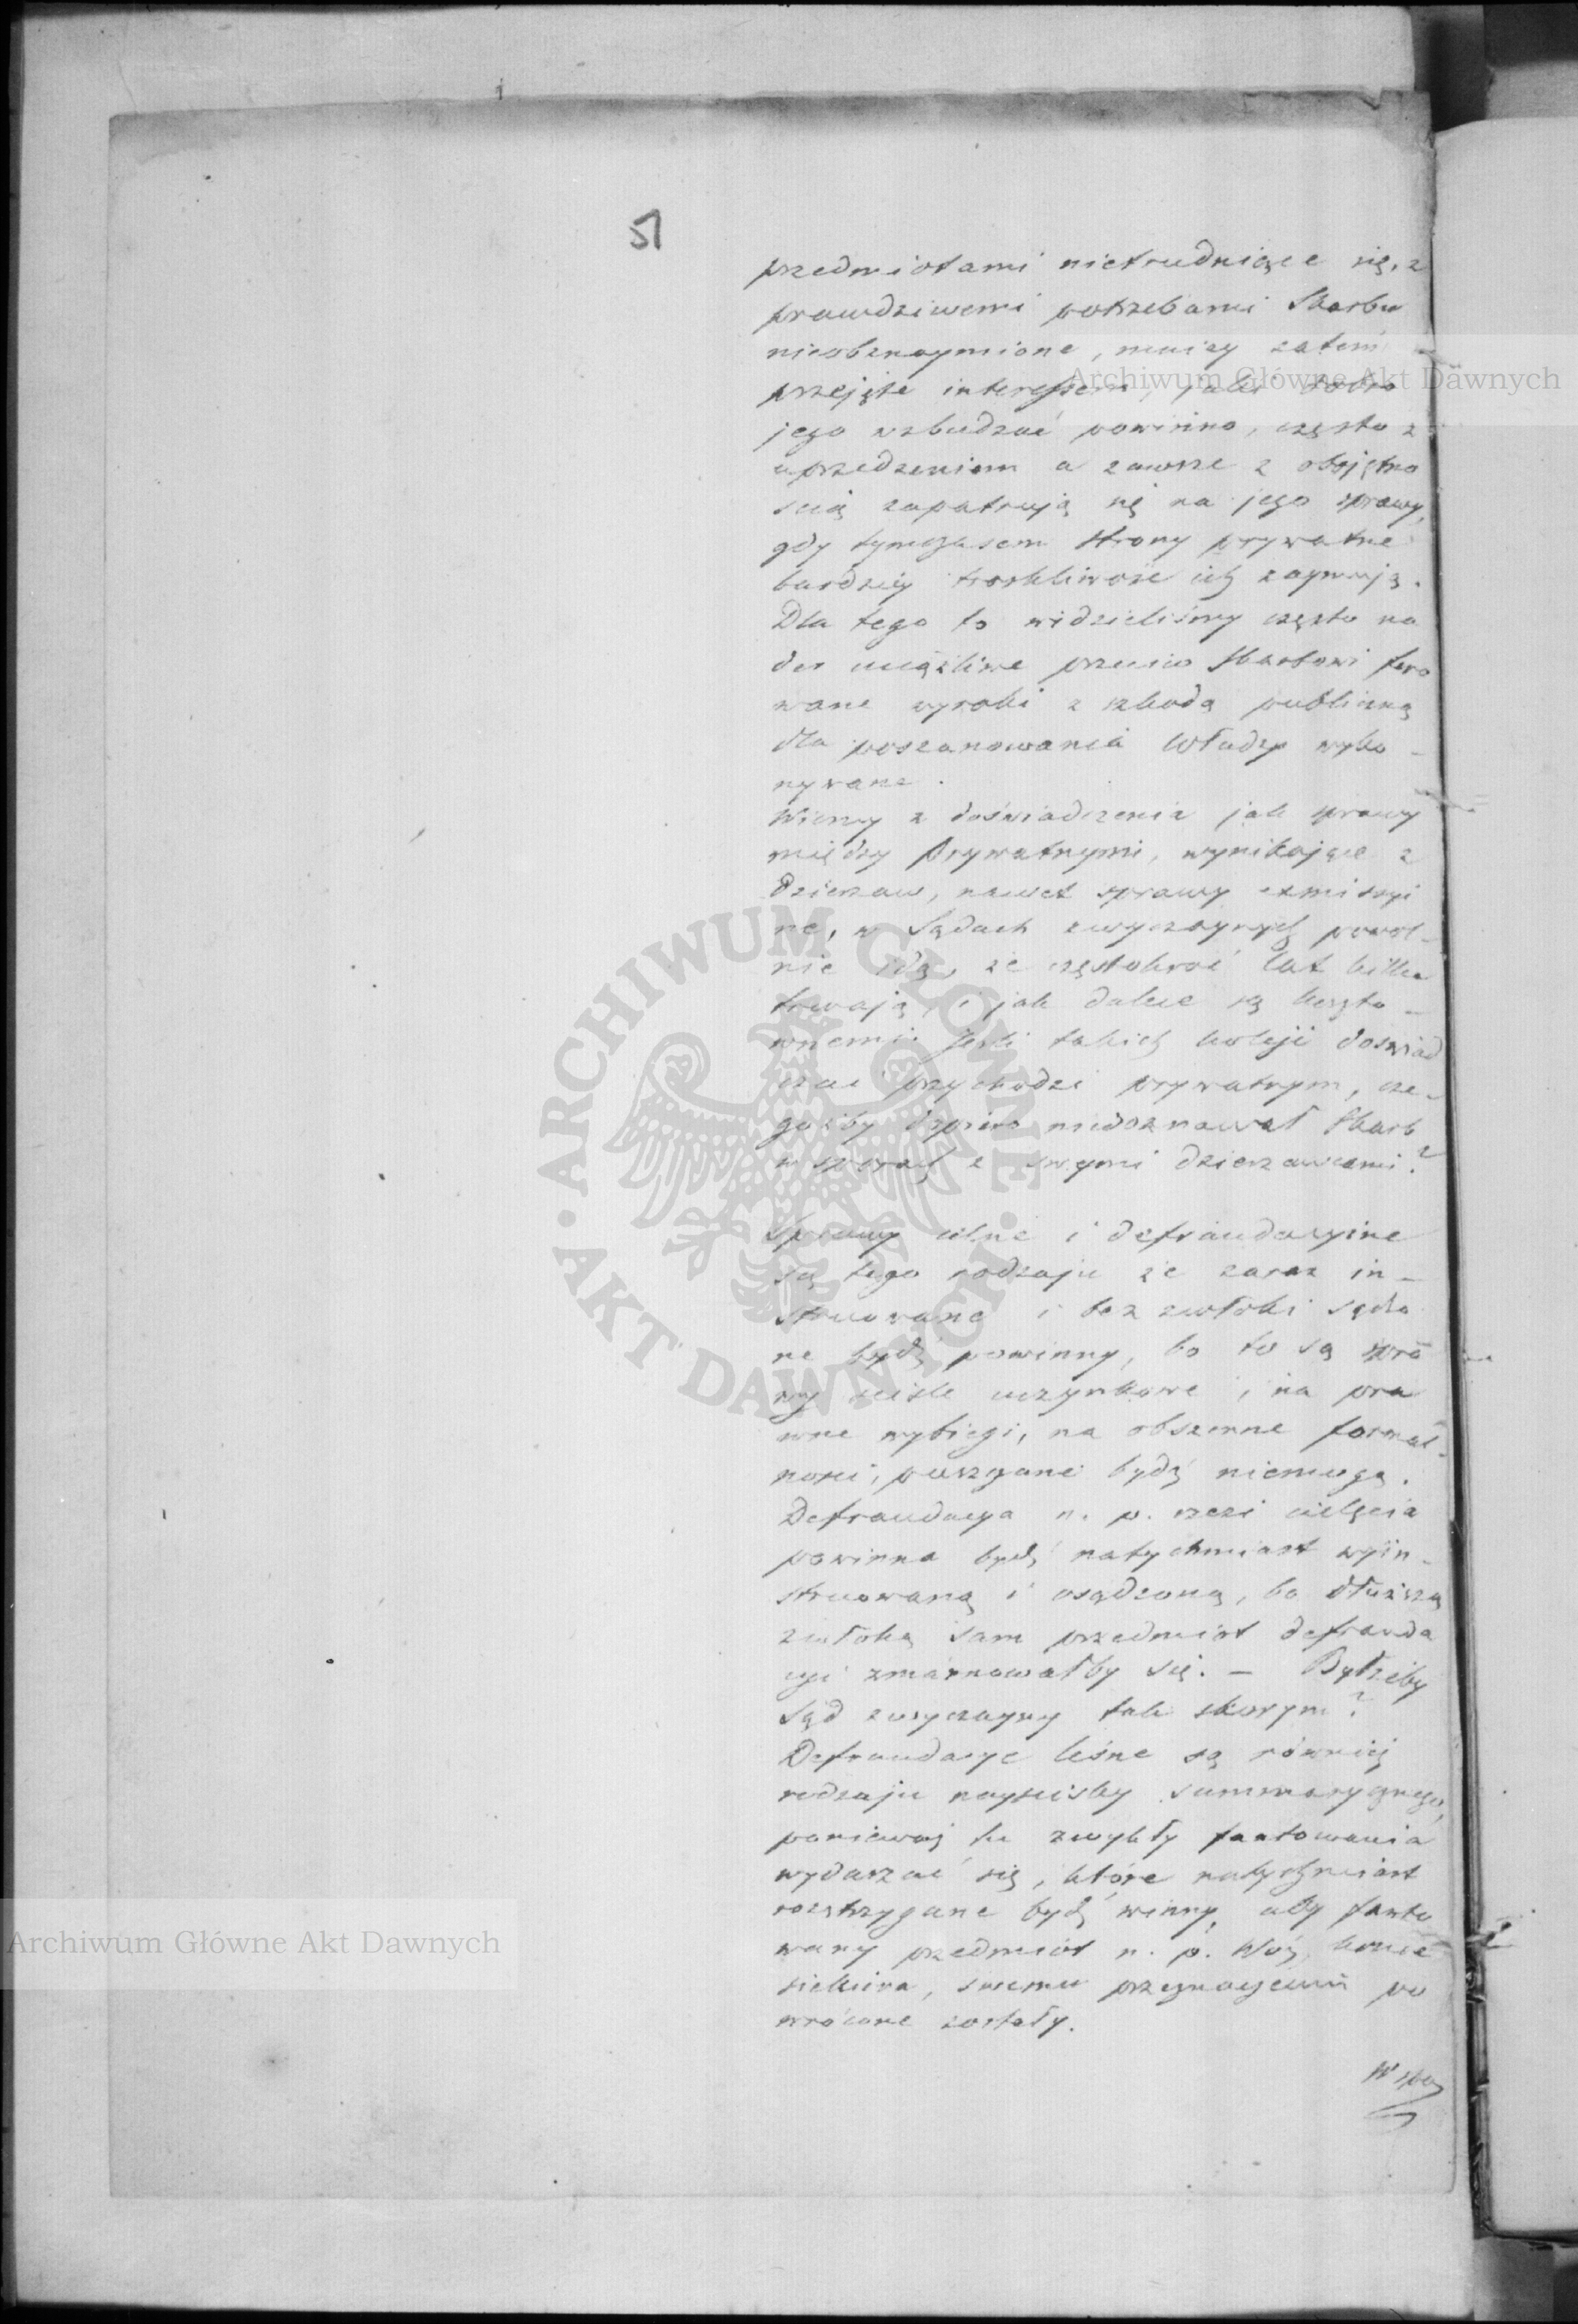 51
przedmiotami nietrudniące się, z
prawdziwemi potrzebami Skarbu
nieobznaymione, mniey zatem
przejęte interessem, jaki dobro
jego wzbudzać powinno, często z
uprzedzeniem a zawsze z obojętno
scią zapatrują się na jego sprawy,
gdy tymczasem strony prywatne
bardziey troskliwość ich zaymują.
Dla tego to widzieliśmy często na
der uciążliwe przeciw Skarbowi fero
wane wyroki z szkodą publiczną
dla poszanowania Władzy wyko-
nywane.
Wiemy z doświadczenia jak sprawy
między Prywatnymi, wynikające z
Dzierzaw, nawet sprawy exmissyi
ne, w Sądach zwyczaynych powol-
nie idą, że częstokroć lat kilka
trwają, i jak dalece są koszto-
wnemi. Jeśli takich koleji doswiad
czać przychodzi prywatnym, cze-
gożby dopiero niedoznawał Skarb
w sporach z swymi dzierzawcami?
Sprawy celne i defraudacyine
są tego rodzaju że zaraz in-
struowane i bez zwłoki sądzo
ne bydź powinny, bo to są spra
wy scisle uczynkowe i na pra
wne wybiegi, na obszerne formal-
nosci, puszczane bydź niemogą.
Defraudacya n. p. rzezi cielęcia
powinna bydź natychmiast wyin-
struowaną i osądzoną, bo dłuższą
zwłoką sam przedmiot defrauda
cyi zmarnowałby się. - Byłżeby
Sąd zwyczayny tak skorym?
Defraudacye leśne są równiéj
rodzaju nayscisley summarycznego,
ponieważ tu zwykły fantowania
wydarzać się, które natychmiast
rozstrzygane bydź winny, aby fanto
wany przedmiot n. p. Wóz, konie
siekiera, swemu przeznaczeniu po
wrócone zostały.
W spo
Archiwum Główne Akt Dawnych
Archiwum Główne Akt Dawnych
ARCHIWUM GŁÓWNE AKT DAWNYCH